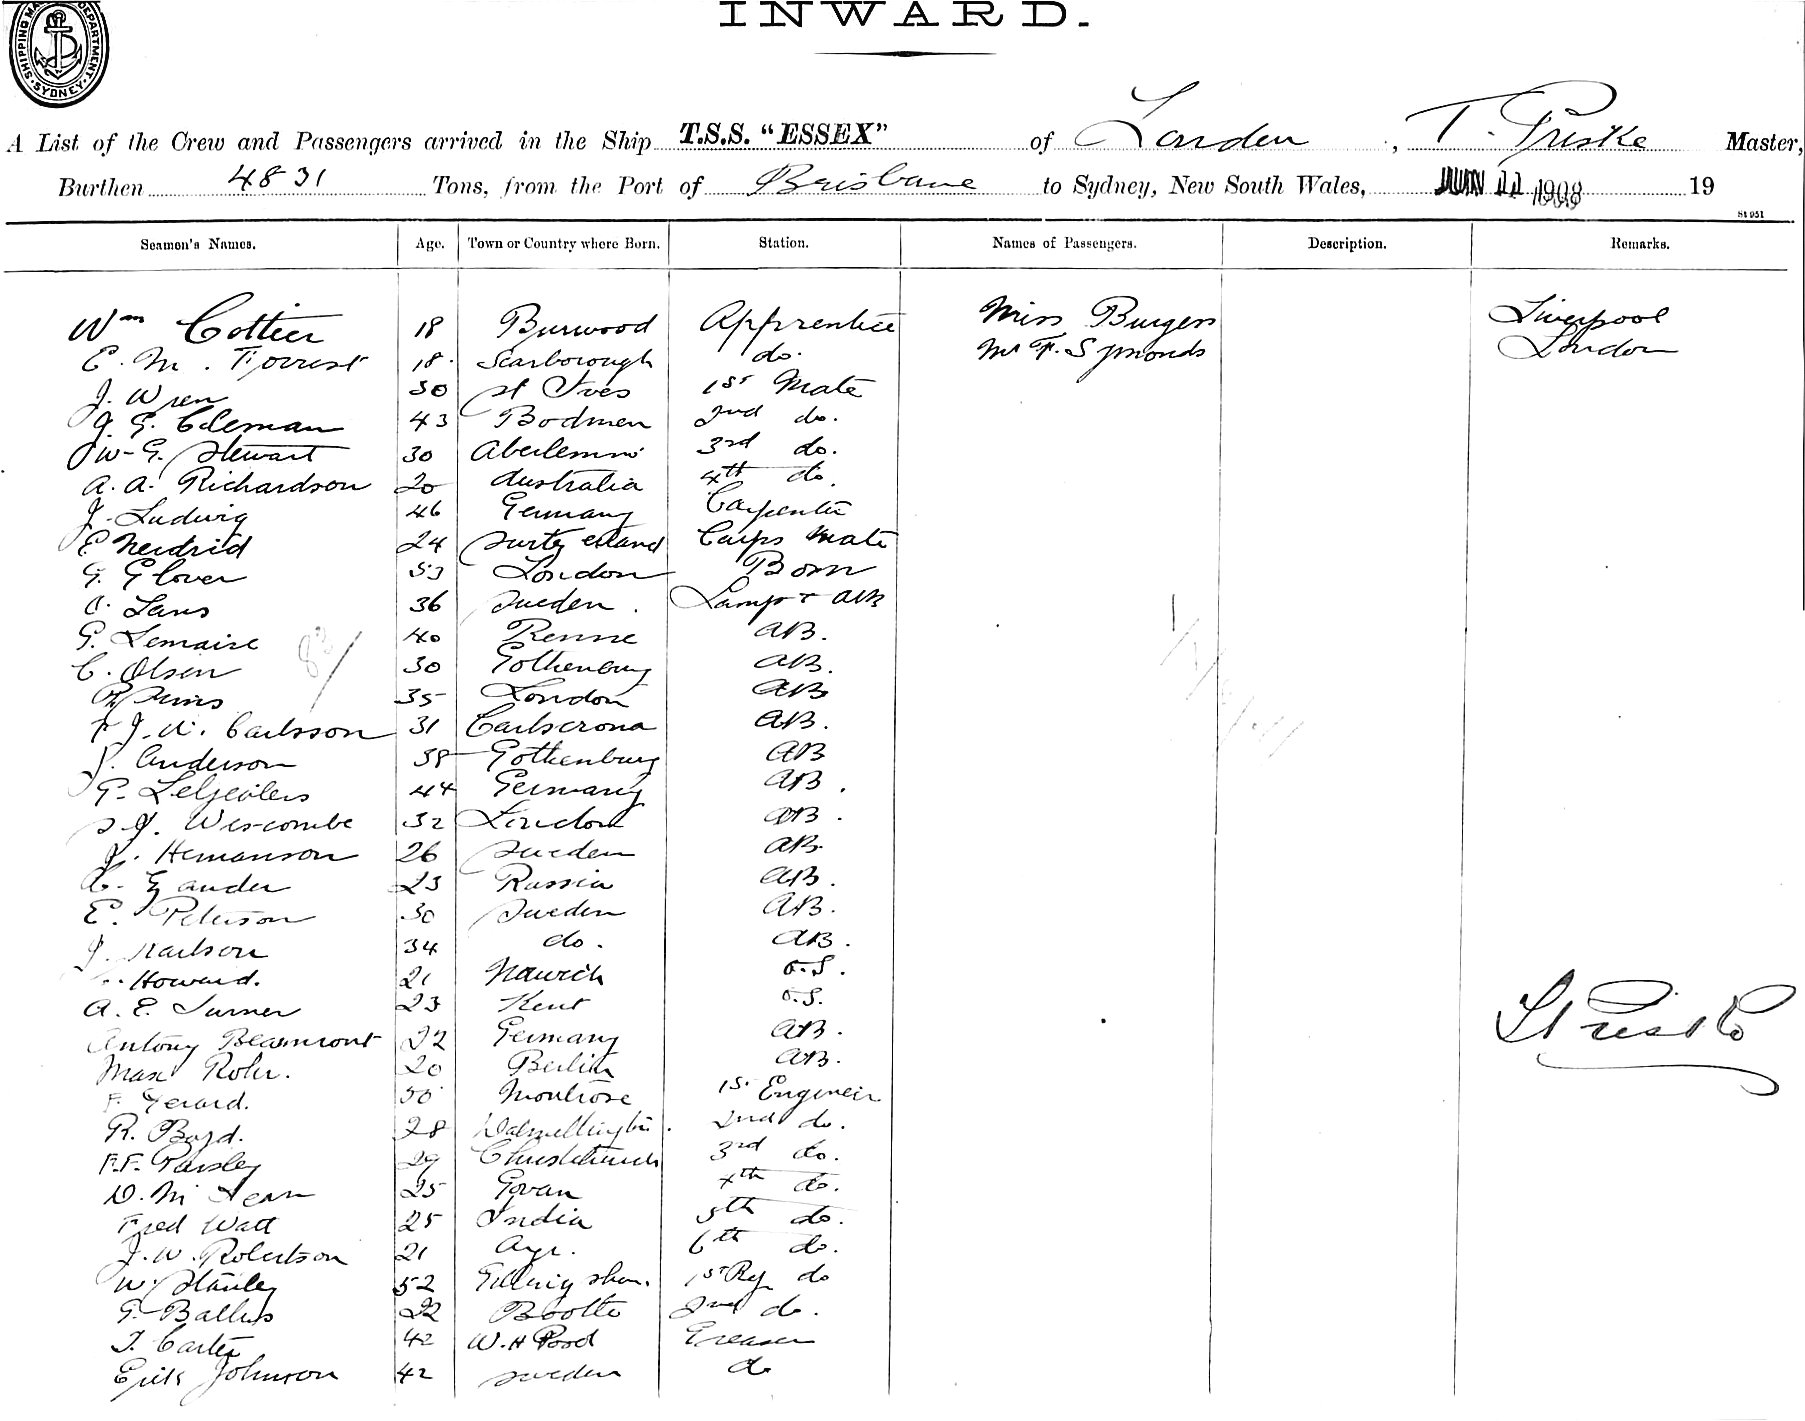 SHIPPING MA DEPARTMENT
SYDNEY
INWARD.
A List of the Crew and Passengers arrived in the Ship T.S.S. "ESSEX" of London, T. Priske Master,
Burthen 4831 Tons, from the Port of Brisbane to Sydney, New South Wales, JUN 11 1908 19
St 951
Seamen's Names. Age. Town or Country where Born. Station. Names of Passengers. Description. Remarks.
Wm Cottier 18 Burwood Apprentice Miss Burgess Liverpool
E. M. Forrest 18 Scarborough do. Mr F. Symonds London
J. Wren 30 St Ives 1st Mate
J. G. Coleman 43 Bodmen 2nd do.
W. G. Stewart 30 Aberlemno 3rd do.
A. A. Richardson 20 Australia 4th do.
J. Ludwig 46 Germany Carpenter
E 24 Carps Mate
G. Glover 53 London Bosn
Lans 36 Sweden. Lamps + AB
G. Lemaire 40 Renne AB.
C. Olsen 30 Gothenburg AB.
35 London AB
F J. W. Carlsson 31 Carlscrona AB.
J. Anderson 38 Gothenburg AB
G. 44 Germany AB.
S J. Wescombe 32 London AB.
J. Hemanson 26 Sweden AB.
Zander 23 Russia AB.
E. Peterson 30 Sweden AB.
J. Karlson 34 do. AB.
Howard. 21 Norwich O.S.
A. E. Turner 23 Kent O.S. T Priske
Antony Beaumont 22 Germany AB.
Max Rohr. 20 Berlin AB.
F. Gerard. 50 Montrose 1st Engineer
R. Boyd. 28 Dalmellington. 2nd do.
F.F. Parsley 29 Christchurch 3rd do.
D. McLean 25 Govan 4th do.
Fred Watt 25 India 5th do.
J. W. Robertson 21 Ayr. 6th do.
W. Stanley 52 1st Ref do
G. Ballus 22 Bootle 2nd do.
T. Carter 42 W. H Pood Greaser
Erik Johnson 42 Sweden do